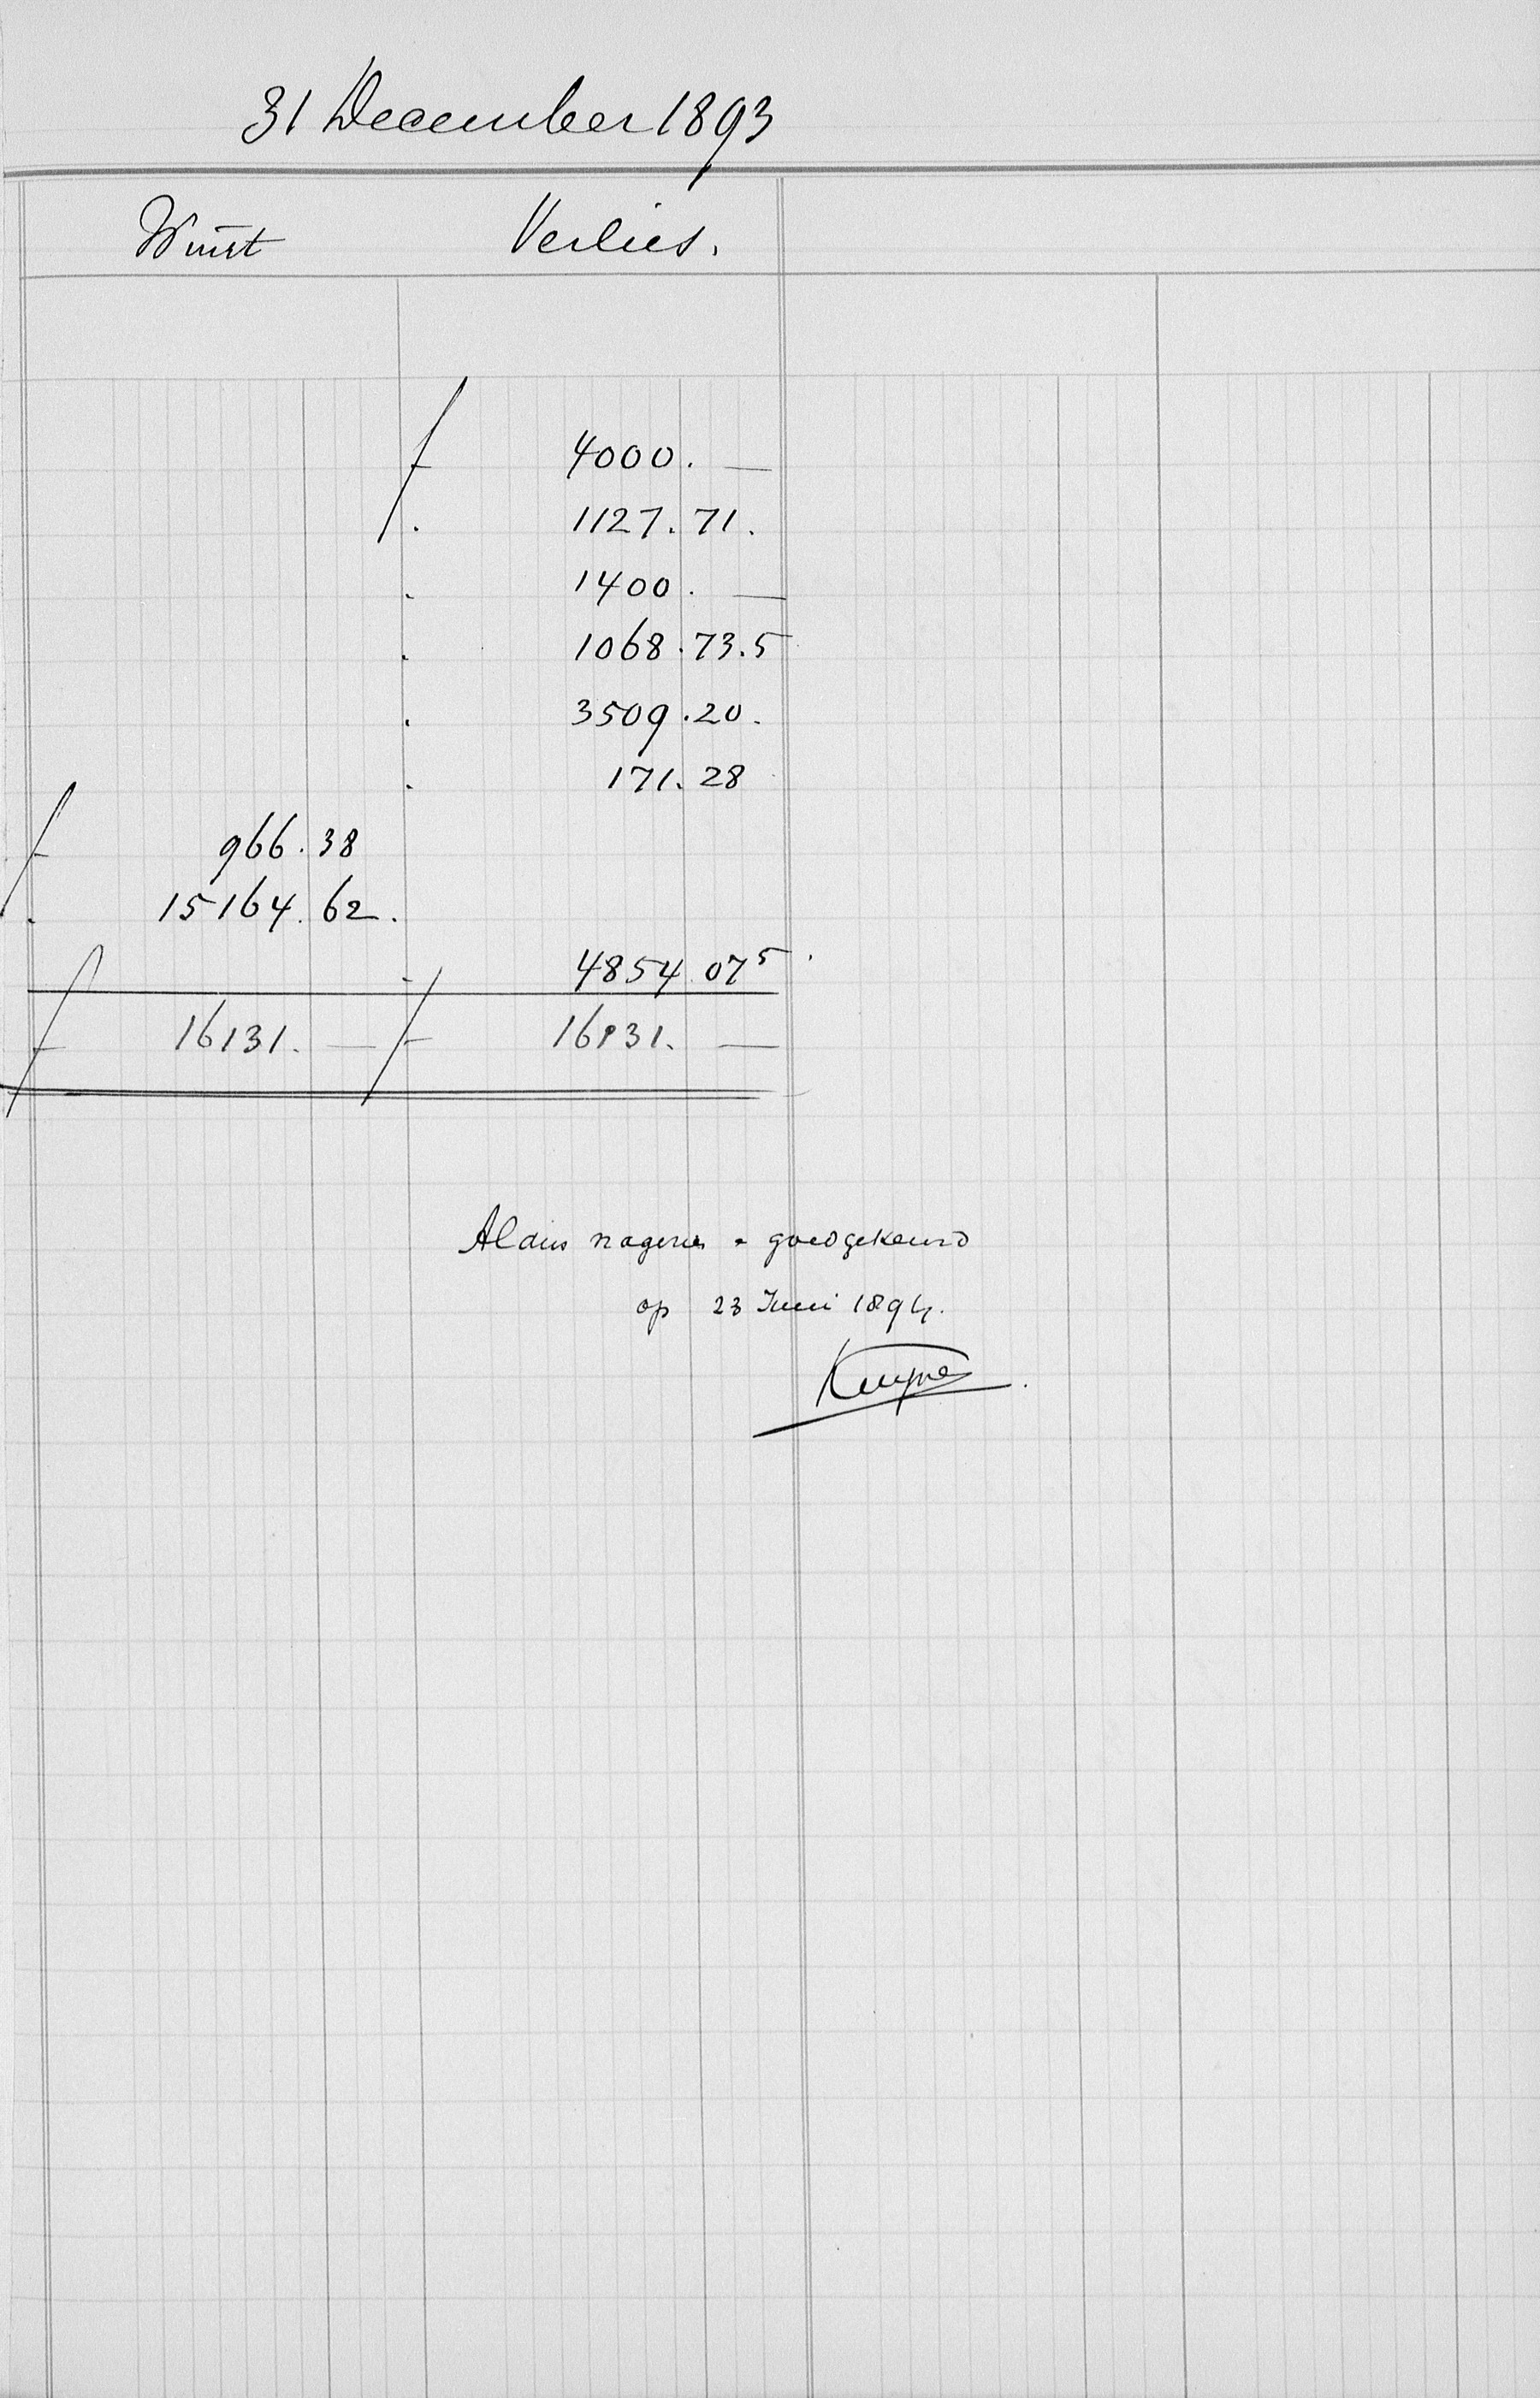 31 December 1893
Winst Verlies.
f 4000. —
. 1127. 71.
. 1400. —
. 1068. 73.5
. 3509. 20.
. 171. 28
f 966. 38
. 15164. 62.
. 4854. 07 5
f 16131. — f 16131. —
Aldus nagezien & goedgekeurd
op 23 Juni 1894.